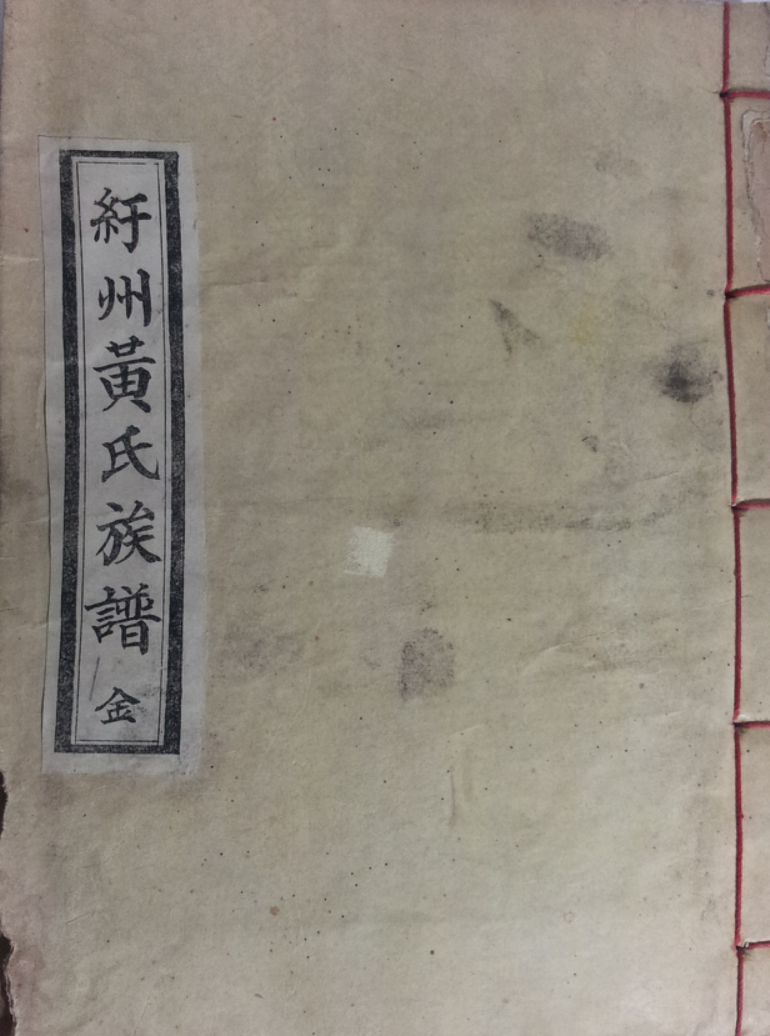 紆州黃氏族譜 金